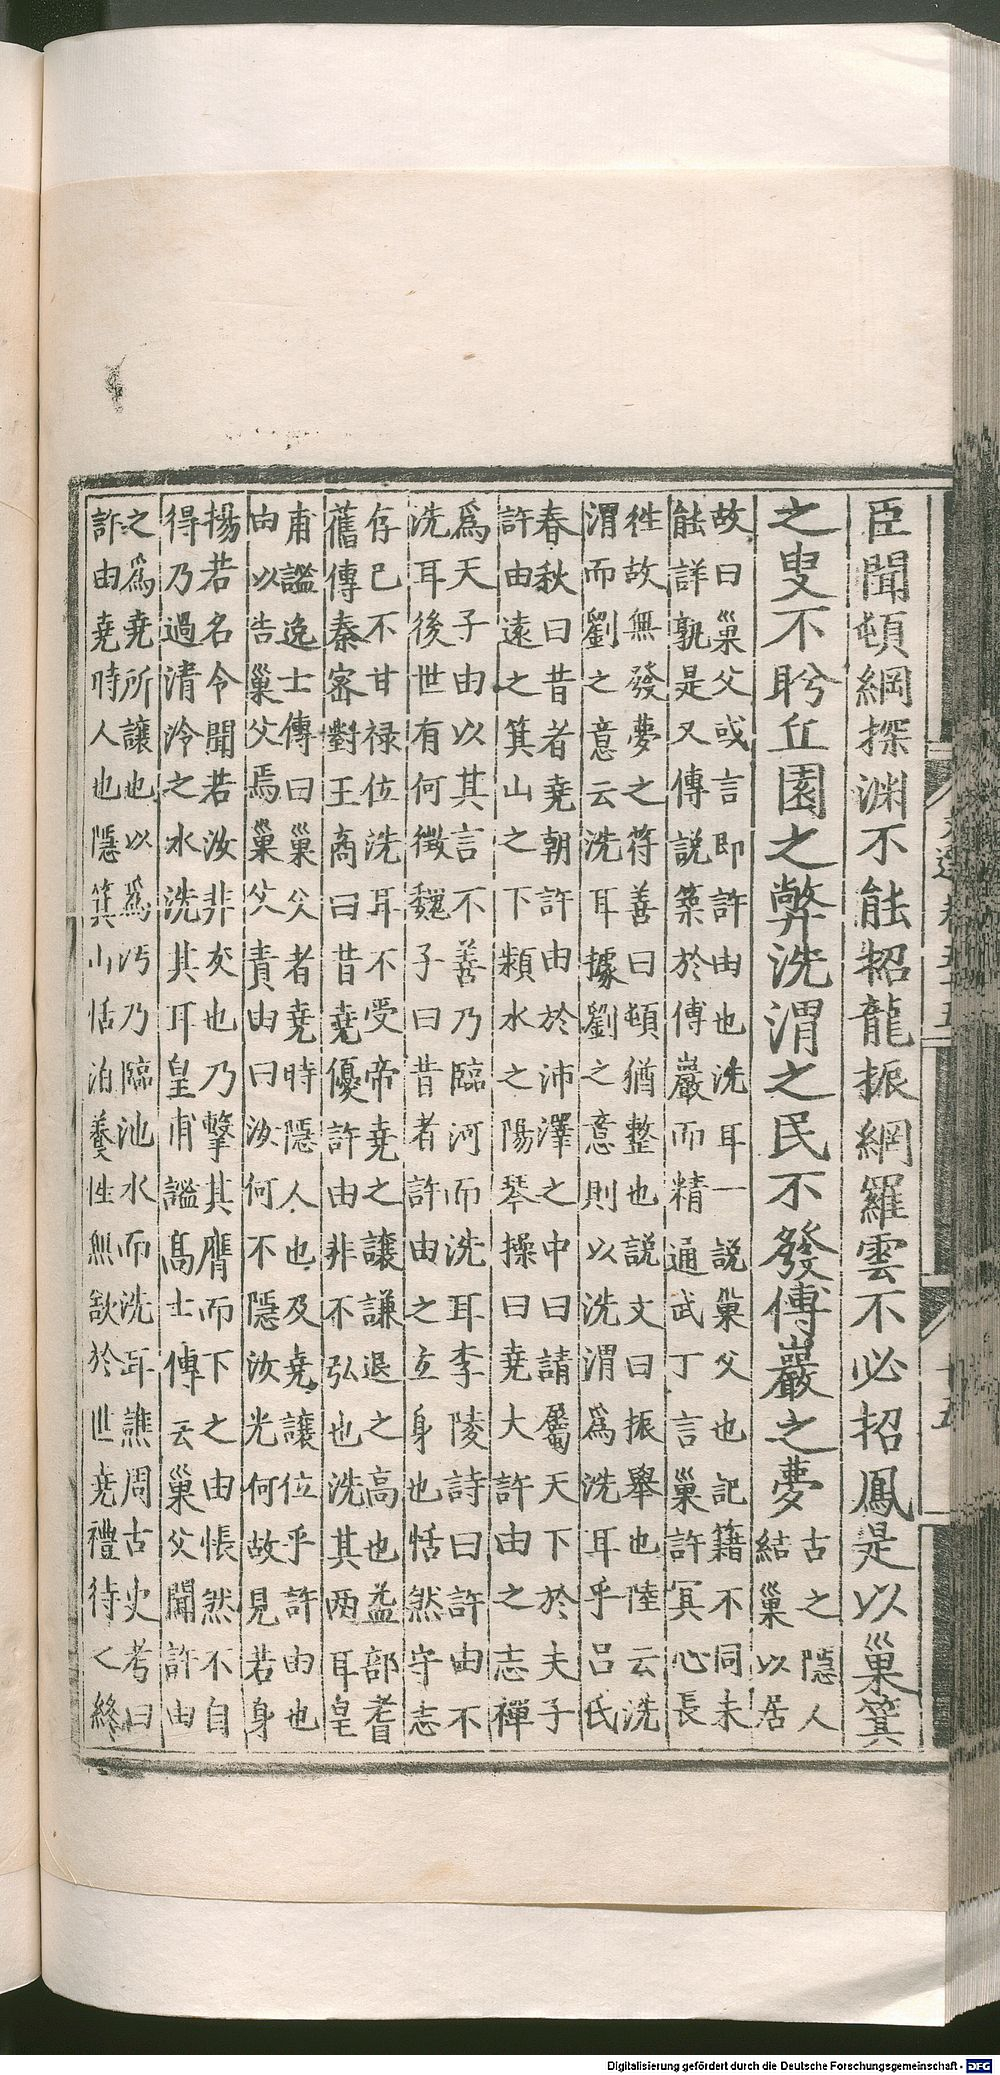 臣聞頓網探淵不能招龍振網羅雲不必招鳳是以巢箕
之叟不眄丘園之幣洗渭之民不發傅巖之夢
古之隱人
結巢以居
故曰巢父或言即許由也洗耳一說巢父也記籍不同未
能詳孰是又傳說築於傅巖而精通武丁言巢許冥心長
往故無發夢之符善曰頓猶整也說文曰振舉也陸云洗
渭而劉之意云洗耳據劉之意則以洗渭爲洗耳乎呂氏
春秋曰昔者堯朝許由於沛澤之中曰請屬天下於夫子
許由遠之箕山之下潁水之陽琴操曰堯大許由之志禪
爲天子由以其言不善乃臨河而洗耳李陵詩曰許由不
洗耳後世有何徵魏子曰昔者許由之立身也恬然守志
存己不甘禄位洗耳不受帝堯之讓謙退之高也益部耆
舊傳秦密對王商曰昔堯優許由非不弘也洗其两耳皇
甫謐逸士傳曰巢父者堯時隱人也及堯讓位乎許由也
由以告巢父焉巢父責由曰汝何不隱汝光何故見若身
揚若名令聞若汝非友也乃擊其膺而下之由悵然不自
得乃過清泠之水洗其耳皇甫謐髙士傳云巢父聞許由
之爲堯所讓也以爲汚乃臨池水而洗耳譙周古史考曰
許由堯時人也隱箕山恬泊養性無欲於世堯禮待之終
文選卷五十五
十五
Digitalisierung gefördert durch die Deutsche Forschungsgemeinschaft - DFG